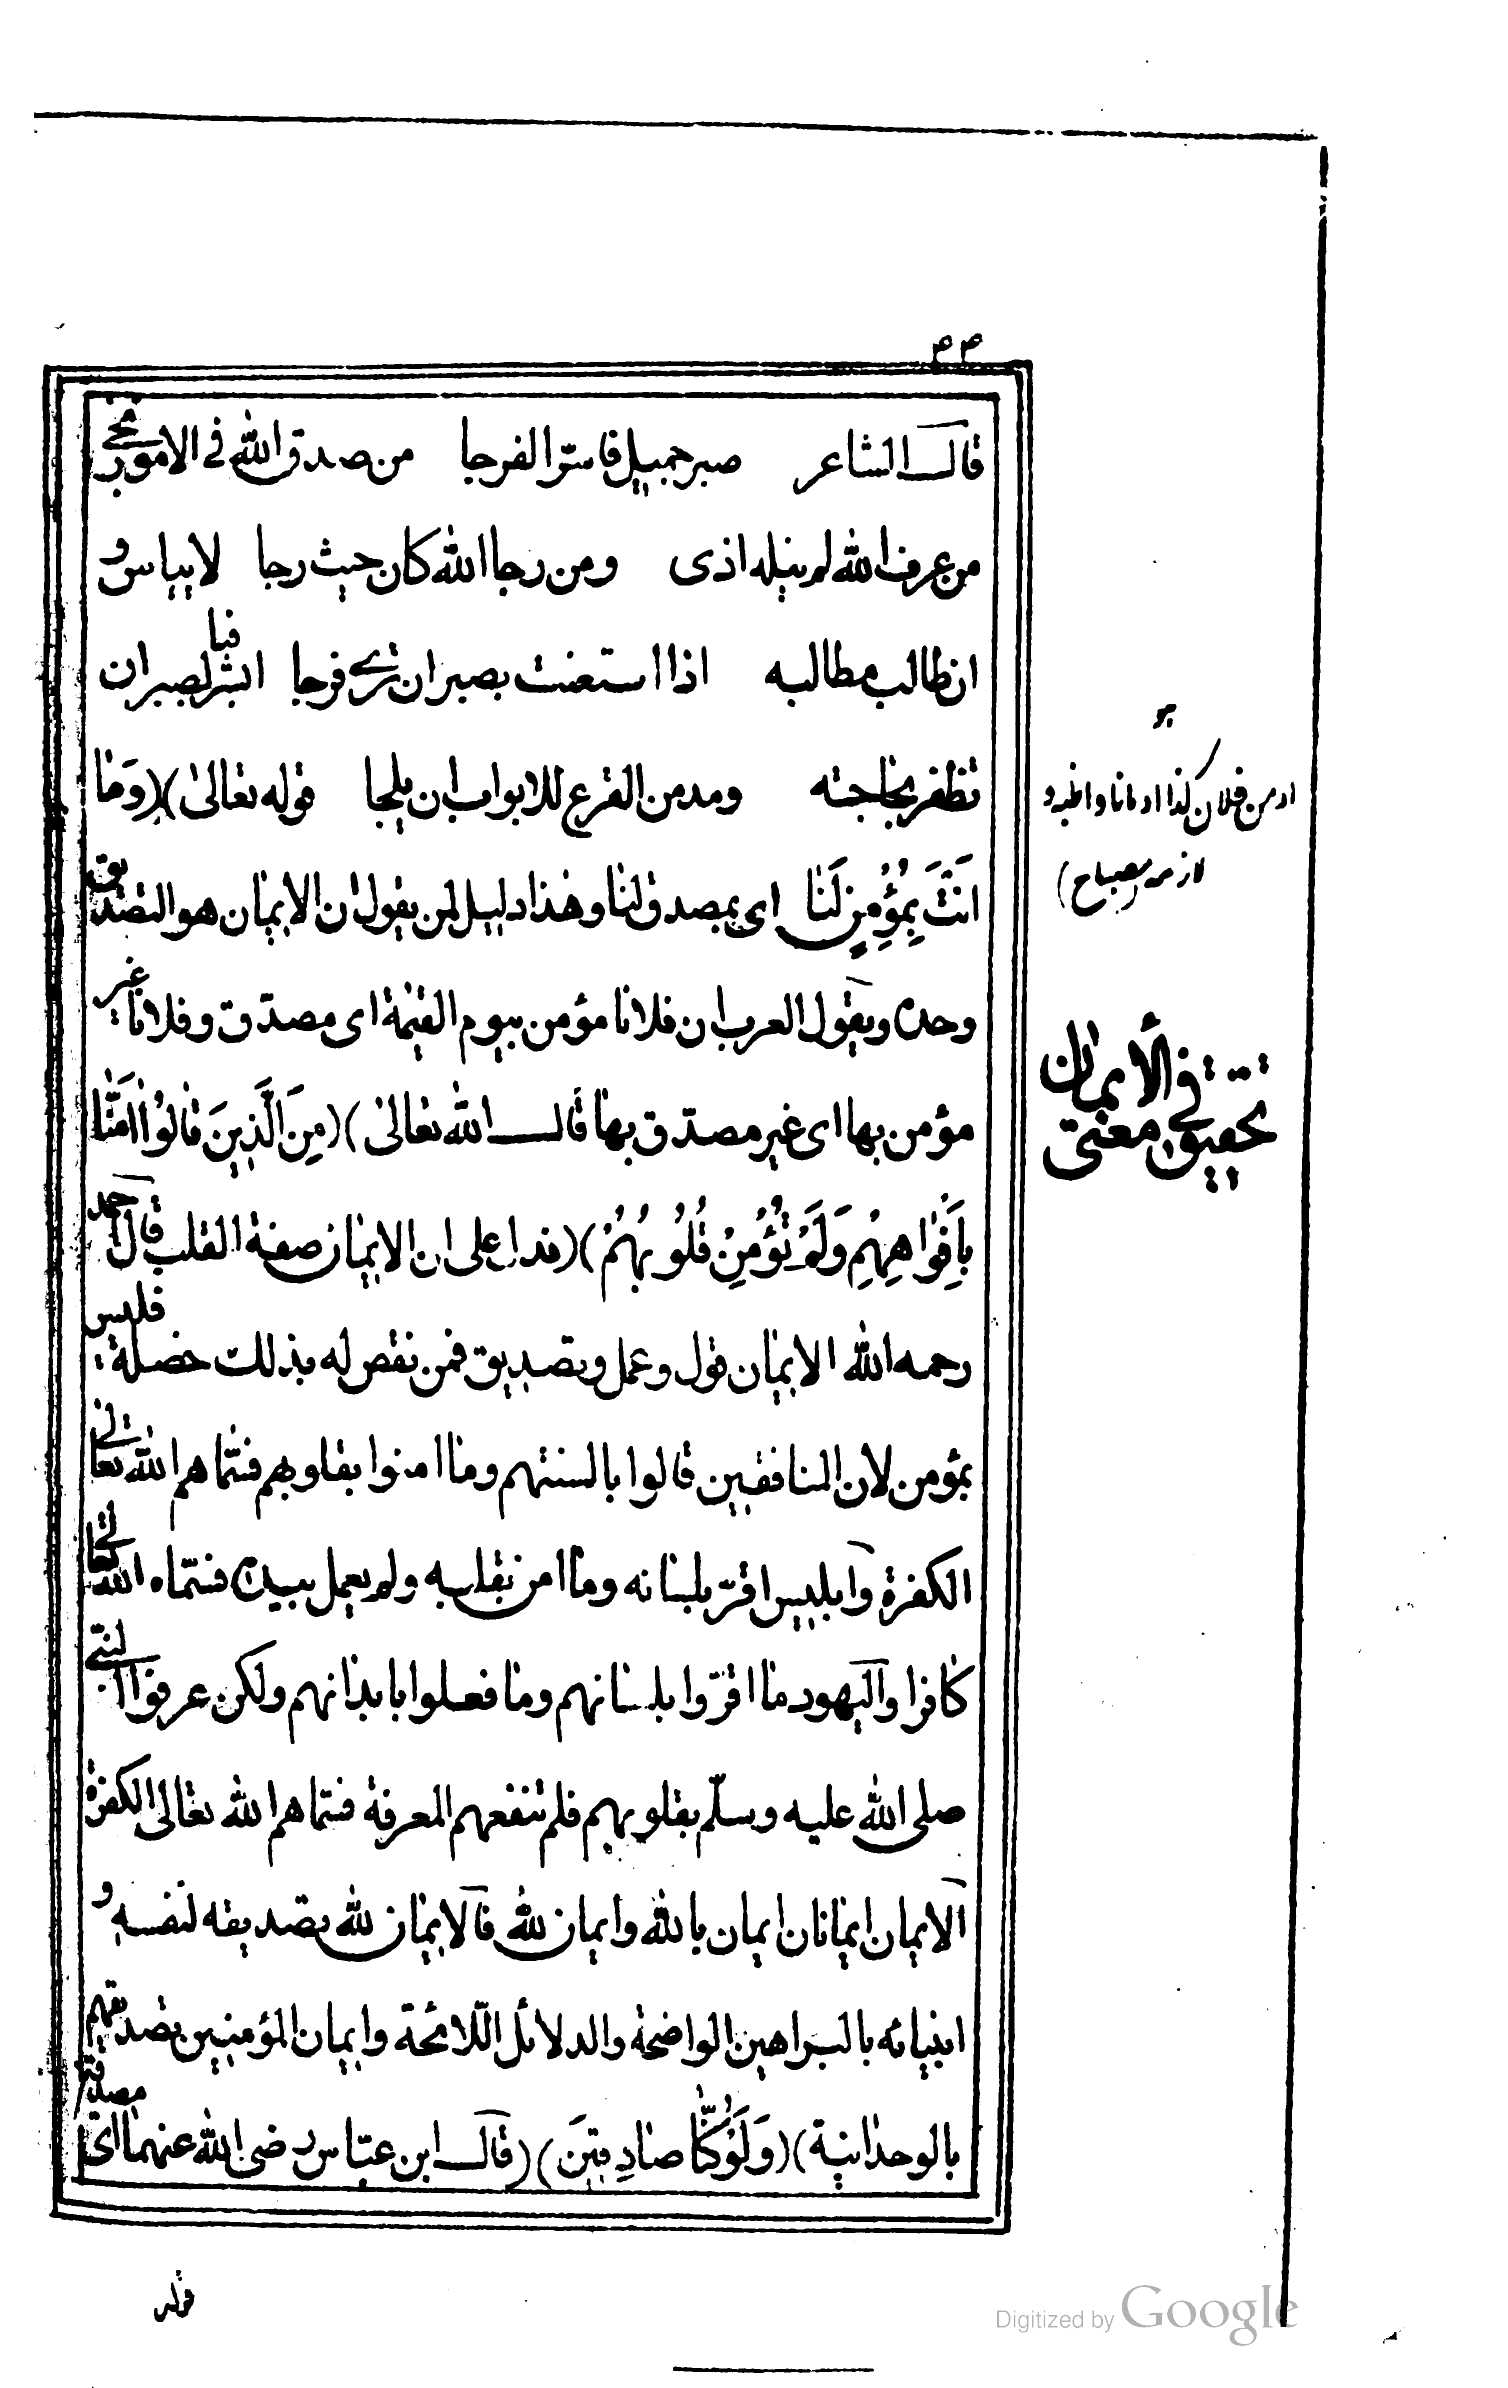 ٣٣
قال الشاعر صبر جميل فاسرّ الفرجا من صدق الله في الامور نجى
من عرف الله لم ينله اذى ومن رجا الله كان حيث رجا لا ييأس و
ان طالب مطالبه اذا استعنت بصبر ان ترى فرجا ابشر فيا لصبر ان
تظفر بحاجته ومدمن القرع للابواب ان يلجا قوله تعالى (وَمَا
اَنْتَ بِمُؤْمِنٍ لَنَا اى بمصدق لنا وهذا دليل لمن يقول ان الايمان هو التصديق
وحده ويقول العرب ان فلانا مؤمن بيوم القيمة اى مصدّق و فلانا غير
مؤمن بها اى غير مصدّق بها قال الله تعالى (مِنَ الَّذِينَ قَالُوا اٰمَنَّا
بِاَفْوَاهِهِمْ وَلَمْ تُؤْمِنْ قُلُوبُهُمْ) فدل على ان الايمان صفة القلب قال احمد
رحمه الله الايمان قول وعمل وتصديق فمن نقص له بذلك خصلة فليس
بمؤمن لان المنافقين قالوا بالسنتهم وما امنوا بقلوبهم فسمّاهم الله تعالى
الكفرة وابليس اقرّ بلسانه وما امن بقلبه ولم يعمل ببدنه فسمّاه الله تعالى
كافرا واليهود ما اقرّوا بلسانهم وما فعلوا بابدانهم ولكن عرفوا النبي
صلى الله عليه وسلّم بقلوبهم فلم تنفعهم المعرفة فسماهم الله تعالى الكفرة
الايمان ايمانان ايمان بالله وايمان لله فالايمان لله تصديقه لنفسه و
انبيائه بالبراهين الواضحة والدلائل اللائحة وايمان المؤمنين تصديقهم
بالوحدانية (وَلَوْ كُنَّا صَادِقِينَ) قال ابن عبّاس رضى الله عنهما اى مصدقين
ادمن فلان كذا ادمانا واظبه و
لازمه (مصباح)
تحقيق في معنى
الأيمان
Digitized by Google